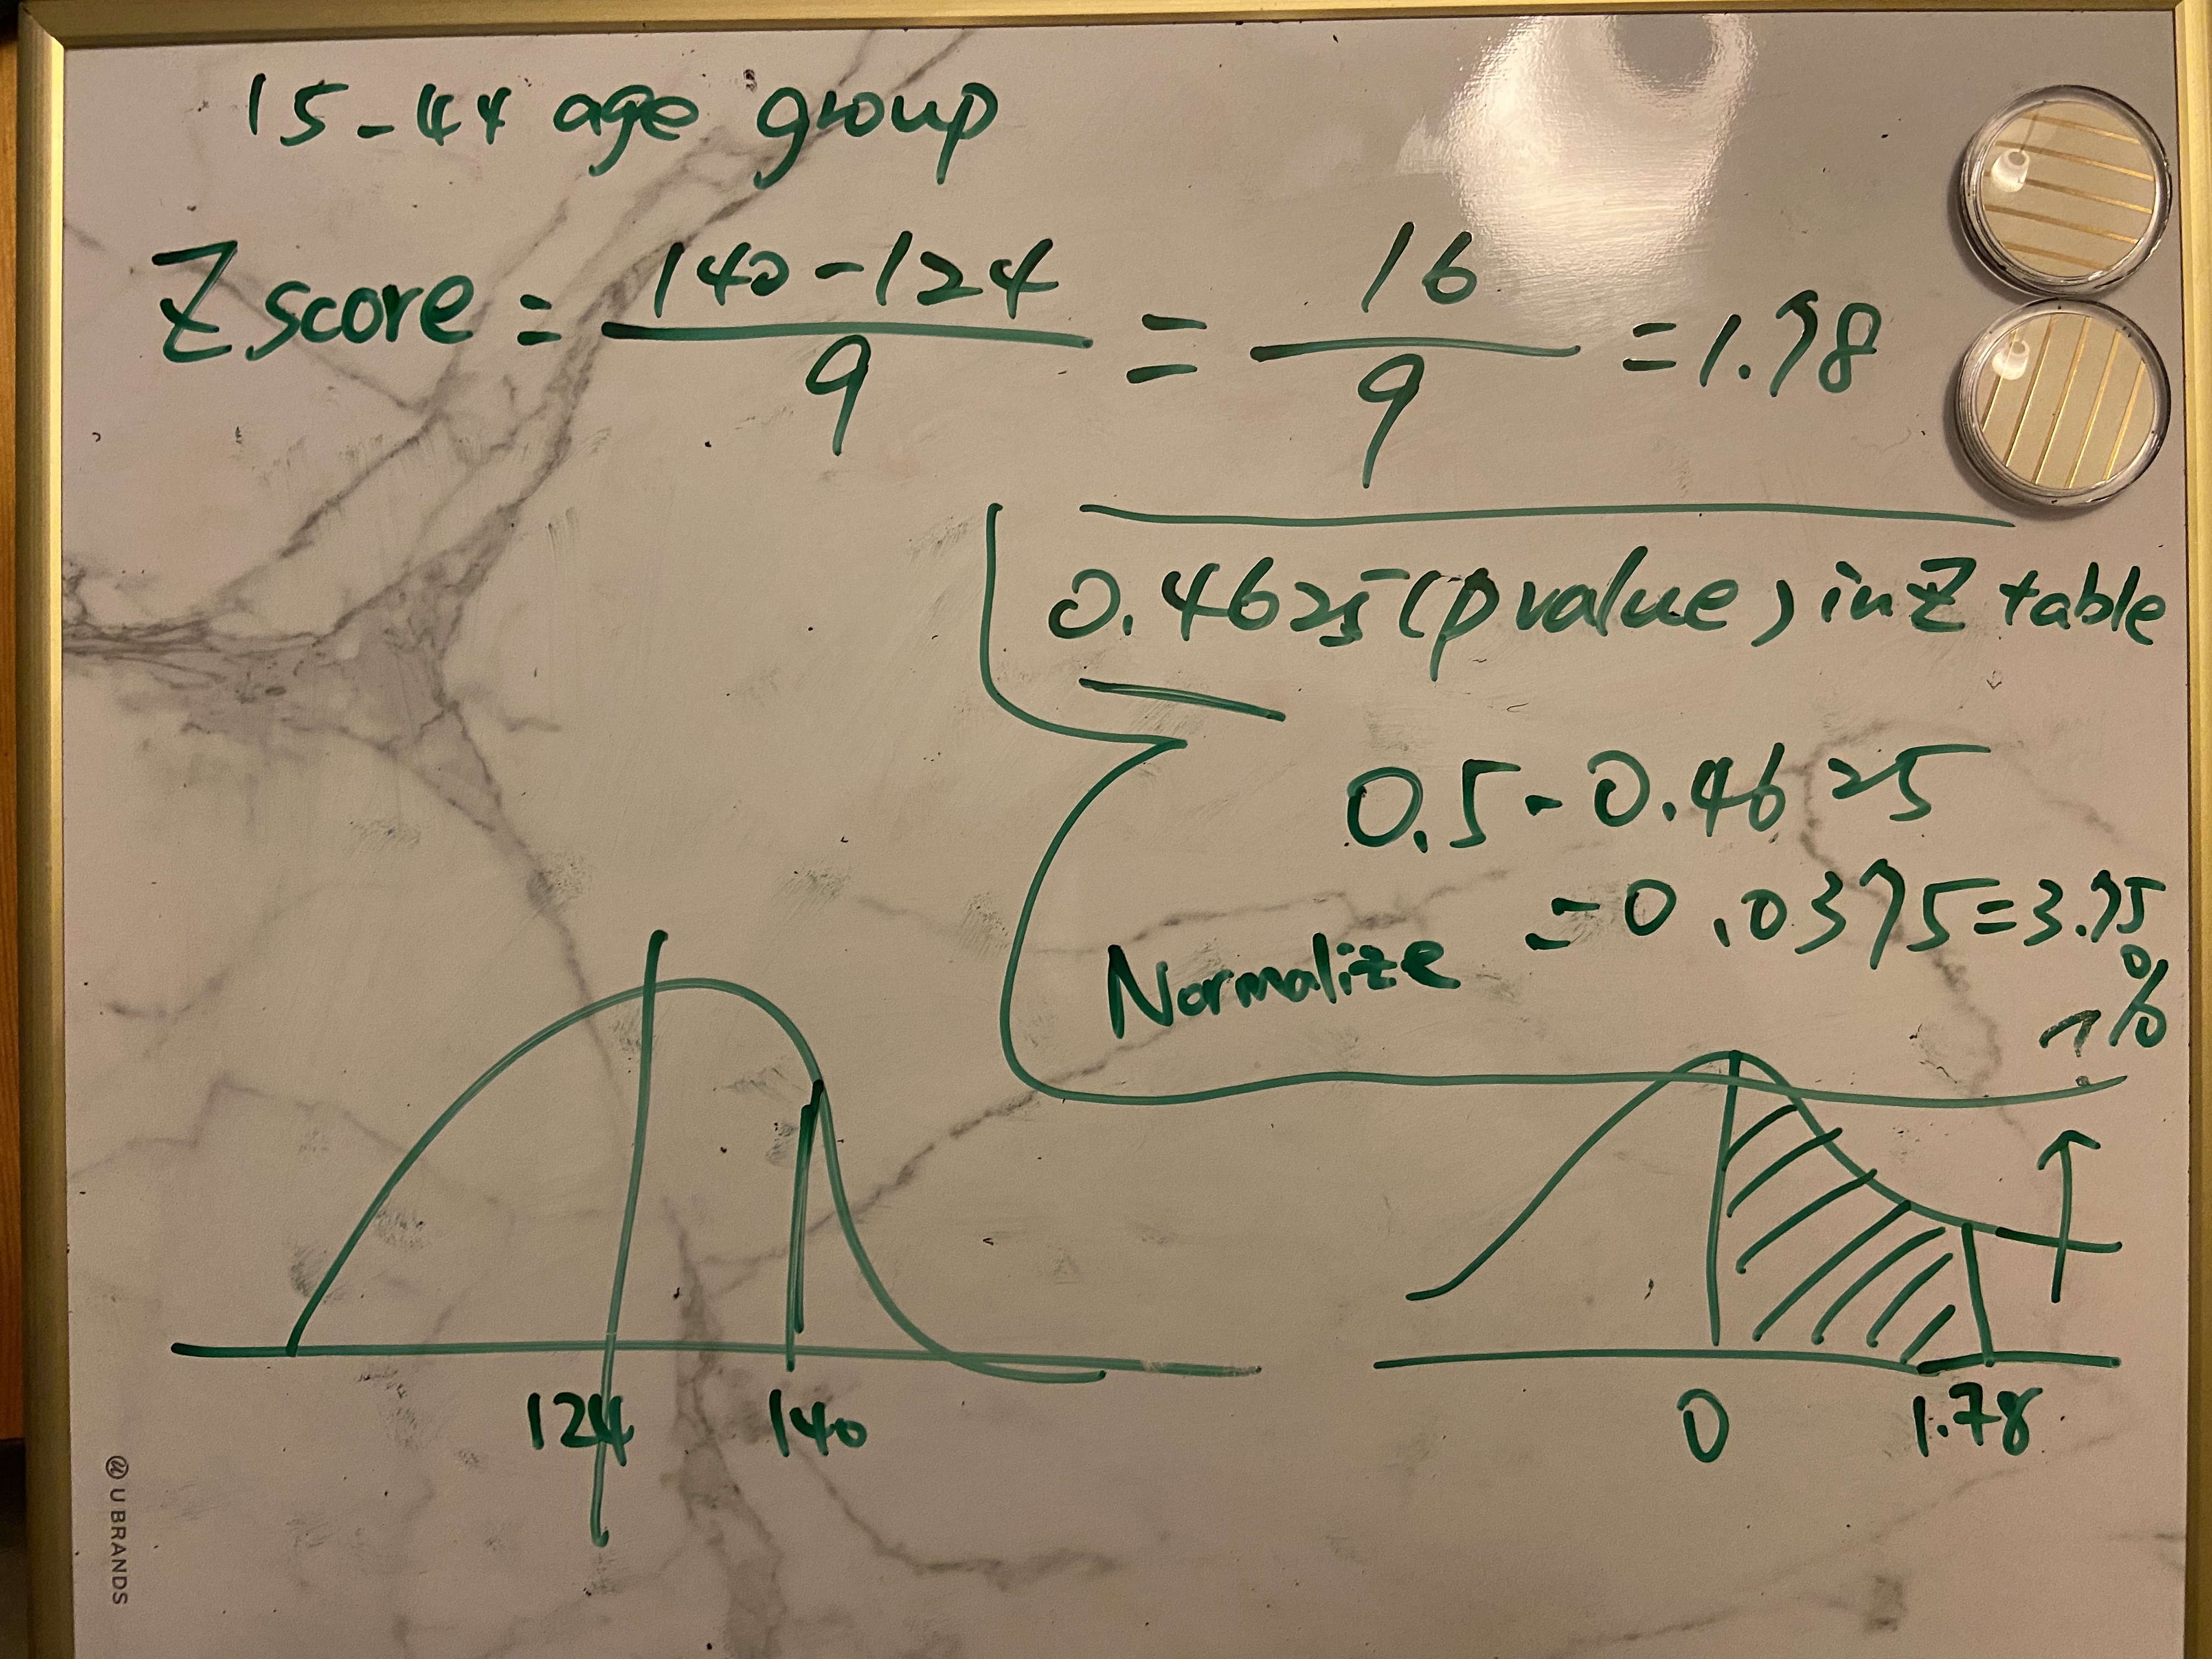 15-44 age group
Z score = 140-124 / 9 = 16 / 9 = 1.78
0.4625 (p value) in Z table
0.5-0.4625
=0.0375=3.75
%
Normalize
124 140
0 1.78
U BRANDS